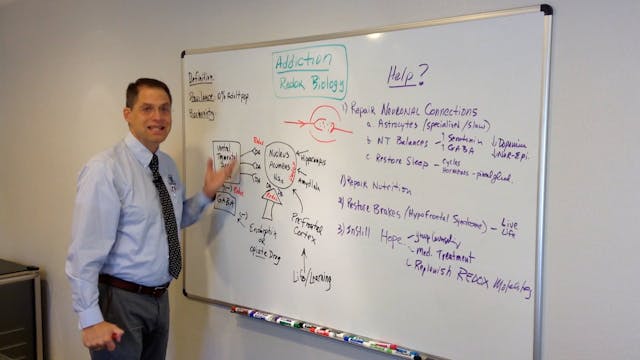 Addiction
Redox Biology
Definition
Prevalence 10% adult pop
Ventral
GABA
DA
DA
DA
Redox
Redox
Nucleus
Acumbens
NAc
Hippocampus
Amygdala
Prefrontal
Cortex
Life/Learning
Endorphin
or
opiate Drug
Help?
1) Repair Neuronal Connections
a. Astrocytes (specialized/slow)
b. NT Balances - ↑ Serotonin ↓ Dopamine
↑ GABA ↓ Nor-Epi.
c. Restore Sleep - cycles
Hormones - pineal gland
1) Repair Nutrition
2) Restore Brakes (Hypofrontal Syndrome) - Live
Life
3) Instill Hope
Med. Treatment
Replenish REDOX Molecules